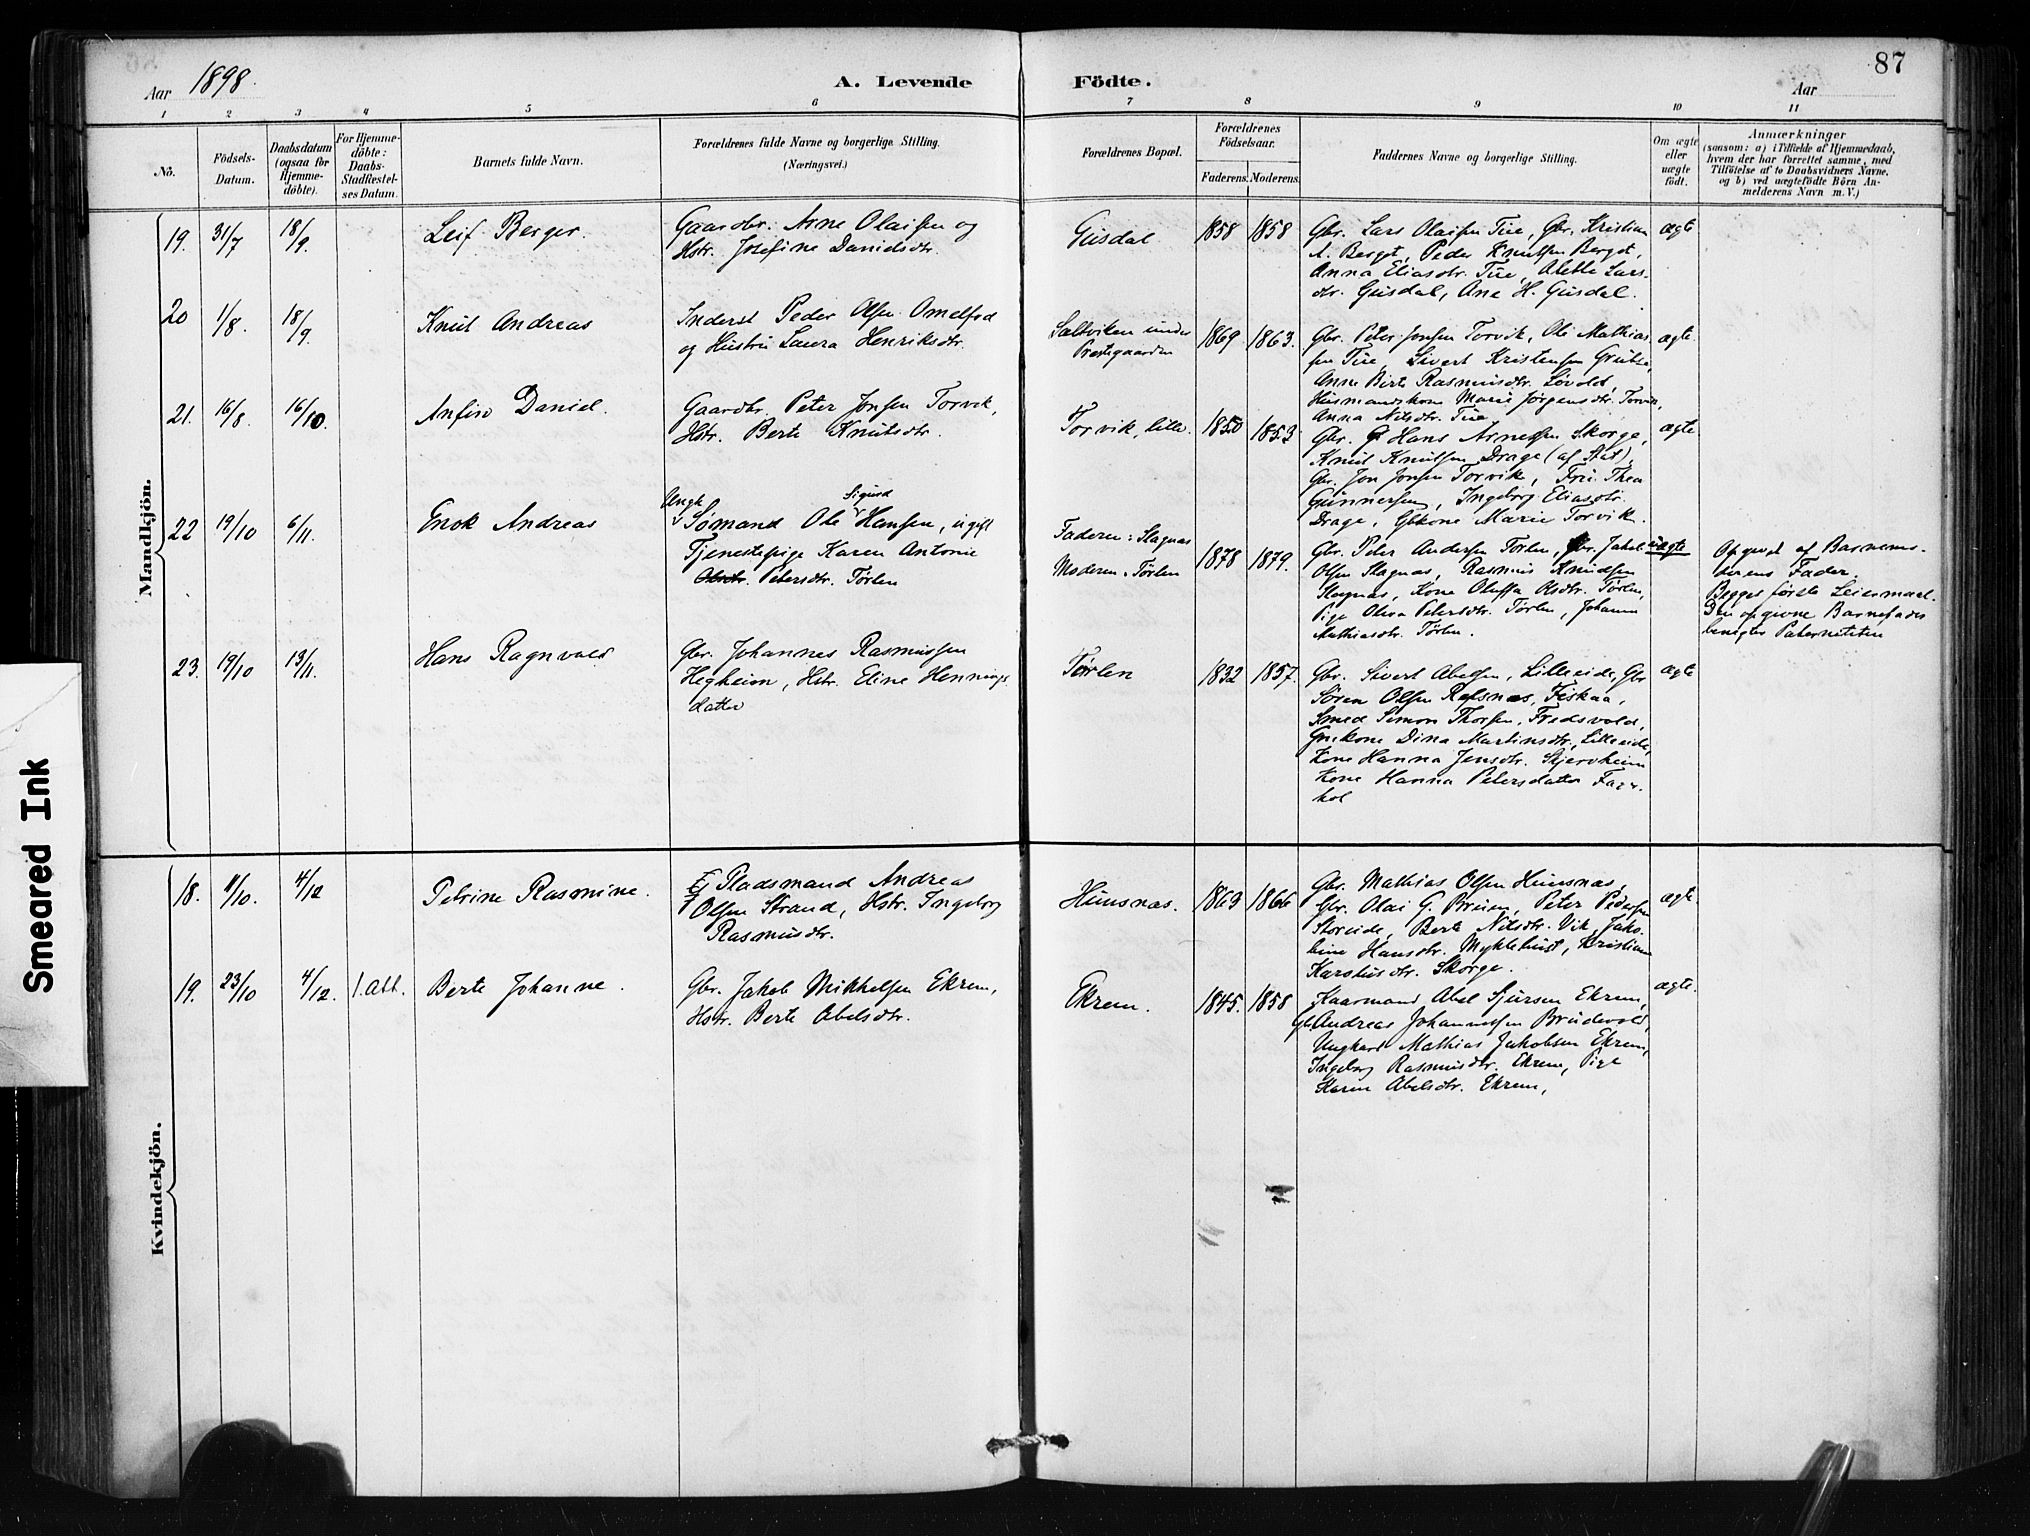 87
Aar 1898.
A. Levende Födte.
Aar
1 2 3 4 5 6 7 8 9 10 11
No.
Födsels-
Datum.
Daabsdatum
(ogsaa for
Hjemme-
döbte).
For Hjemme-
döbte:
Daabs-
Stadfæstel-
ses Datum.
Barnets fulde Navn.
Forældrenes fulde Navne og borgerlige Stilling.
(Næringsvei.)
Forældrenes Bopæl.
Forældrenes
Födselsaar.
Faderens. Moderens.
Faddernes Navne og borgerlige Stilling.
Om ægte
eller
uægte
födt.
Anmærkninger
(saasom: a) i Tilfælde af Hjemmedaab,
hvem der har forrettet samme, med
Tilföielse af to Daabsvidners Navne,
og b) ved uægtefödte Börn An-
melderens Navn m. V.)
Mandkjön.
19. 31/7 18/9. Leif Berger.
Gaardbr. Arne Olaisen og
Hstr. Josefine Danielsdtr.
Gusdal 1858 1858
Gbr. Lars Olaisen Tue, Gbr. Kristian
A. Berget, Peder Knutsen Berget,
Anna Eliasdtr. Tue, Alette Lars-
dtr. Gusdal, Ane H. Gusdal.
ægte
20 1/8. 18/9. Knut Andreas
Inderst Peder Olsen Omelfod
og Hustru Laura Henriksdtr.
Saltviken under
Præstegaarden
1869 1863.
Gbr. Peter Jonsen Torvik, Ole Mathias-
sen Tue, Sivert Kristensen
Anne Berte Rasmusdtr. Løvold,
Husmandskone Marie Jørgensdtr. Torvik,
Anna Nilsdtr. Tue
ægte.
21. 16/8. 16/10. Anfin Daniel.
Gaardbr. Peter Jonsen Torvik,
Hstr. Berte Knutsdtr.
Torvik, lille. 1850 1853
Gbr. Hans Arnesen Skorge,
Knut Knutsen Drage (af Stat),
Gbr. Jon Jonsen Torvik, Fru Thea
Gunnersen, Ingeborg Eliasdtr.
Drage, Gbkone Marie Torvik.
ægte
22 19/10 6/11. Enok Andreas
Ungk. Sigurd
Sømand Ole Hansen, ugift
Tjenestepige Karen Antonie
Olsdtr. Petersdtr. Tørlen
Faderen: Slagnæs
Moderen: Tørlen
1878 1879.
Gbr. Peter Andersen Tørlen, Gbr. Jakob
Olsen Slagnæs, Rasmus Knudsen
Slagnæs, Kone Oluffa Olsdtr. Tørlen,
Pige Oliva Petersdtr. Tørlen, Johanna
Mathiasdtr. Tørlen.
uægte
Opgivet af Barnemo-
derens Fader.
Begges første Leiermaal.
Den opgivne Barnefader
benegter Paterniteten
23. 19/10 13/11. Hans Ragnvald
Gbr. Johannes Rasmussen
Hegheim, Hstr. Eline Hennings-
datter
Tørlen 1832 1857.
Gbr. Sivert Abelsen, Lilleeide, Gbr
Søren Olsen Refsnes, Fiskaa,
Smed Simon Thorsen, Fredsvold,
Gmkone Dina Martinsdtr. Lilleeide,
Kone Hanna Jensdtr. Skjervheim
Kone Hanna Petersdatter Fager-
hol
ægte
Kvindekjön.
18. 11/10. 4/12 Petrine Rasmine.
Pladsmand Andreas
Olsen Strand, Hstr. Ingeborg
Rasmusdtr.
Hunsnæs. 1863 1866
Gbr. Mathias Olsen Hunsnæs,
Gbr. Olai G. Bruun, Peter Pedersen
Storeide, Berte Nilsdtr. Vik, Jako-
bine Hansdtr. Myklebust, Kristiane
Karstusdtr. Skorge.
ægte.
19. 23/10 4/12. 1. Att. Berte Johanne.
Gbr. Jakob Mikkelsen Ekrem,
Hstr. Berte Abelsdtr.
Ekrem. 1845. 1858
Kaarmand Abel Sjursen Ekrem,
Gb. Andreas Johannessen Brudevold,
Ungkarl Mathias Jakobsen Ekrem,
Ingeborg Rasmusdtr. Ekrem, Pige
Karen Abelsdtr. Ekrem,
ægte.
Smeared Ink